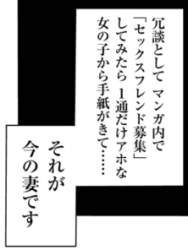 冗談として マンガ内で
「セックスフレンド募集」
してみたら 1通だけアホな
女の子から手紙がきて……
それが
今の妻です